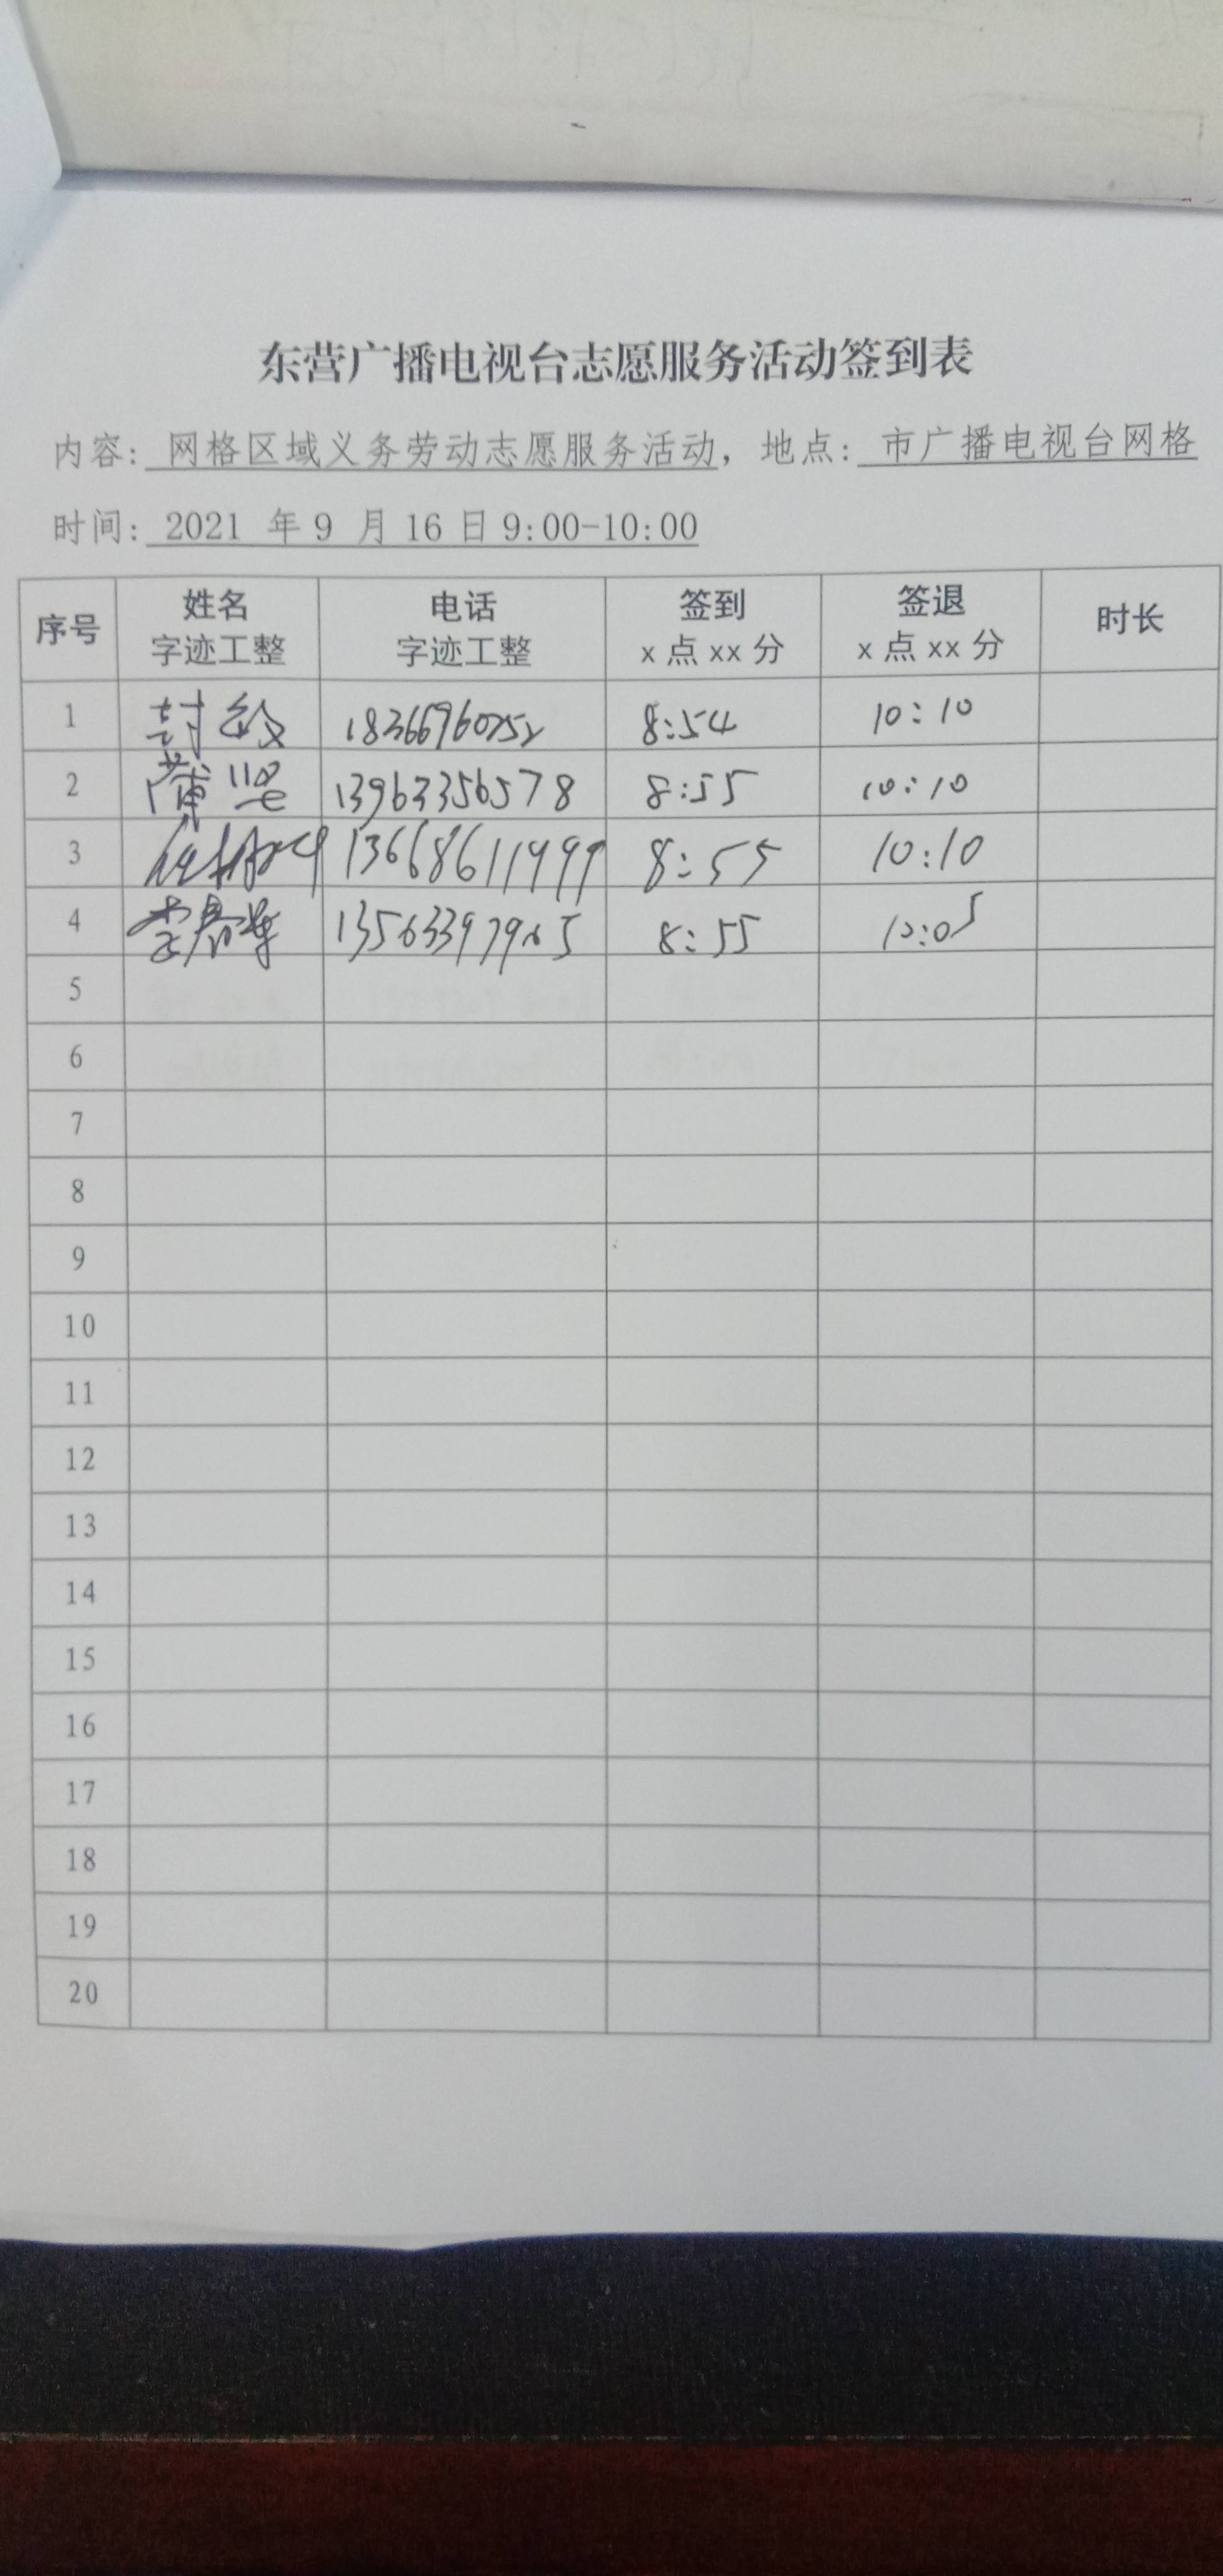 东营广播电视台志愿服务活动签到表
内容: 网格区域义务劳动志愿服务活动, 地点: 市广播电视台网格
时间: 2021 年 9 月 16 日 9:00-10:00
序号 姓名 字迹工整 电话 字迹工整 签到 x 点 xx 分 签退 x 点 xx 分 时长
1 封敏 8:54 10:10
2 薄坚 13963356578 8:55 10:10
3 8:55 10:10
4 李春华 8:55 10:05
5
6
7
8
9
10
11
12
13
14
15
16
17
18
19
20